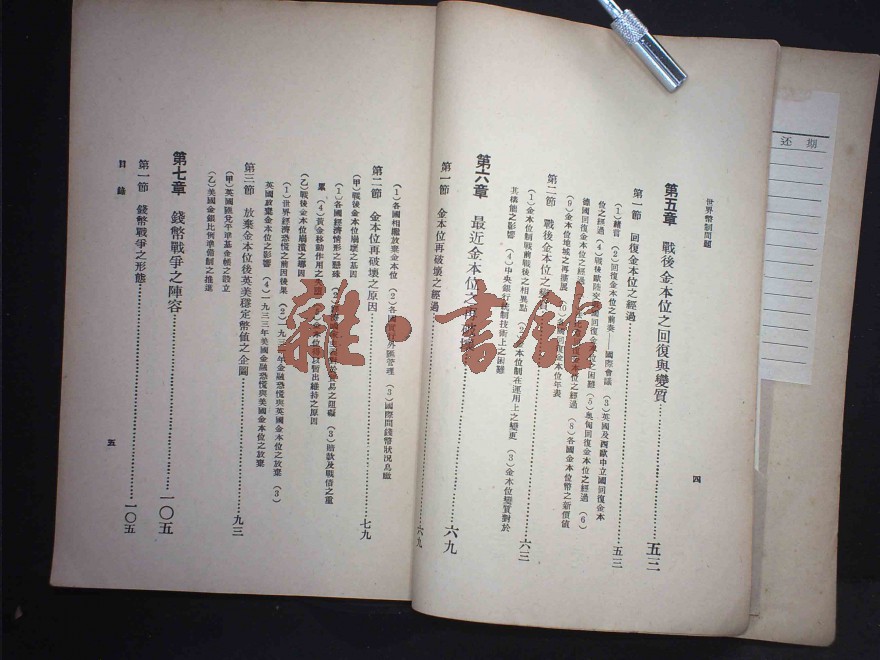 世界幣制問題
四
第五章 戰後金本位之回復與變質……五三
第一節 回復金本位之經過……五三
(1)緒言 (2)回復金本位之前奏——國際會議 (3)英國及西歐中立國回復金本
位之經過 (4)戰後歐陸
回復金
位之困難 (5)奧匈回復金本位之經過 (6)
德國回復金本位之經過
本位之經過 (8)各國金本位幣之新價值
(9)金本位地域之再擴展
回復金本位年表
第二節 戰後金本位之變質……六三
(1)金本位制戰前戰後之相異點 (2)金本位制在運用上之變更 (3)金本位變質對於
其機能之影響 (4)中央銀行統制技術上之困難
第六章 最近金本位之再破壞……六九
第一節 金本位再破壞之經過……六九
(1)各國相繼放棄金本位 (2)各國
外匯管理 (3)國際間錢幣狀況鳥瞰
第二節 金本位再破壞之原因……七九
(甲)戰後金本位崩壞之基因
(1)各國經濟情形之懸殊
貿易之阻礙 (3)賠款及戰債之重
累 (4)黃金移動作用之
暫出維持之原因
(乙)戰後金本位崩潰之導因
(1)世界經濟恐慌之前因後果 (2)一九三一年金融恐慌與英國金本位之放棄 (3)
英國放棄金本位之影響 (4)一九三三年美國金融恐慌與美國金本位之放棄
第三節 放棄金本位後英美穩定幣值之企圖……九三
(甲)英國匯兌平準基金制之設立
(乙)美國金銀比例準備制之推進
第七章 錢幣戰爭之陣容……一〇五
第一節 錢幣戰爭之形態……一〇五
目錄
五
还期
雜·書館